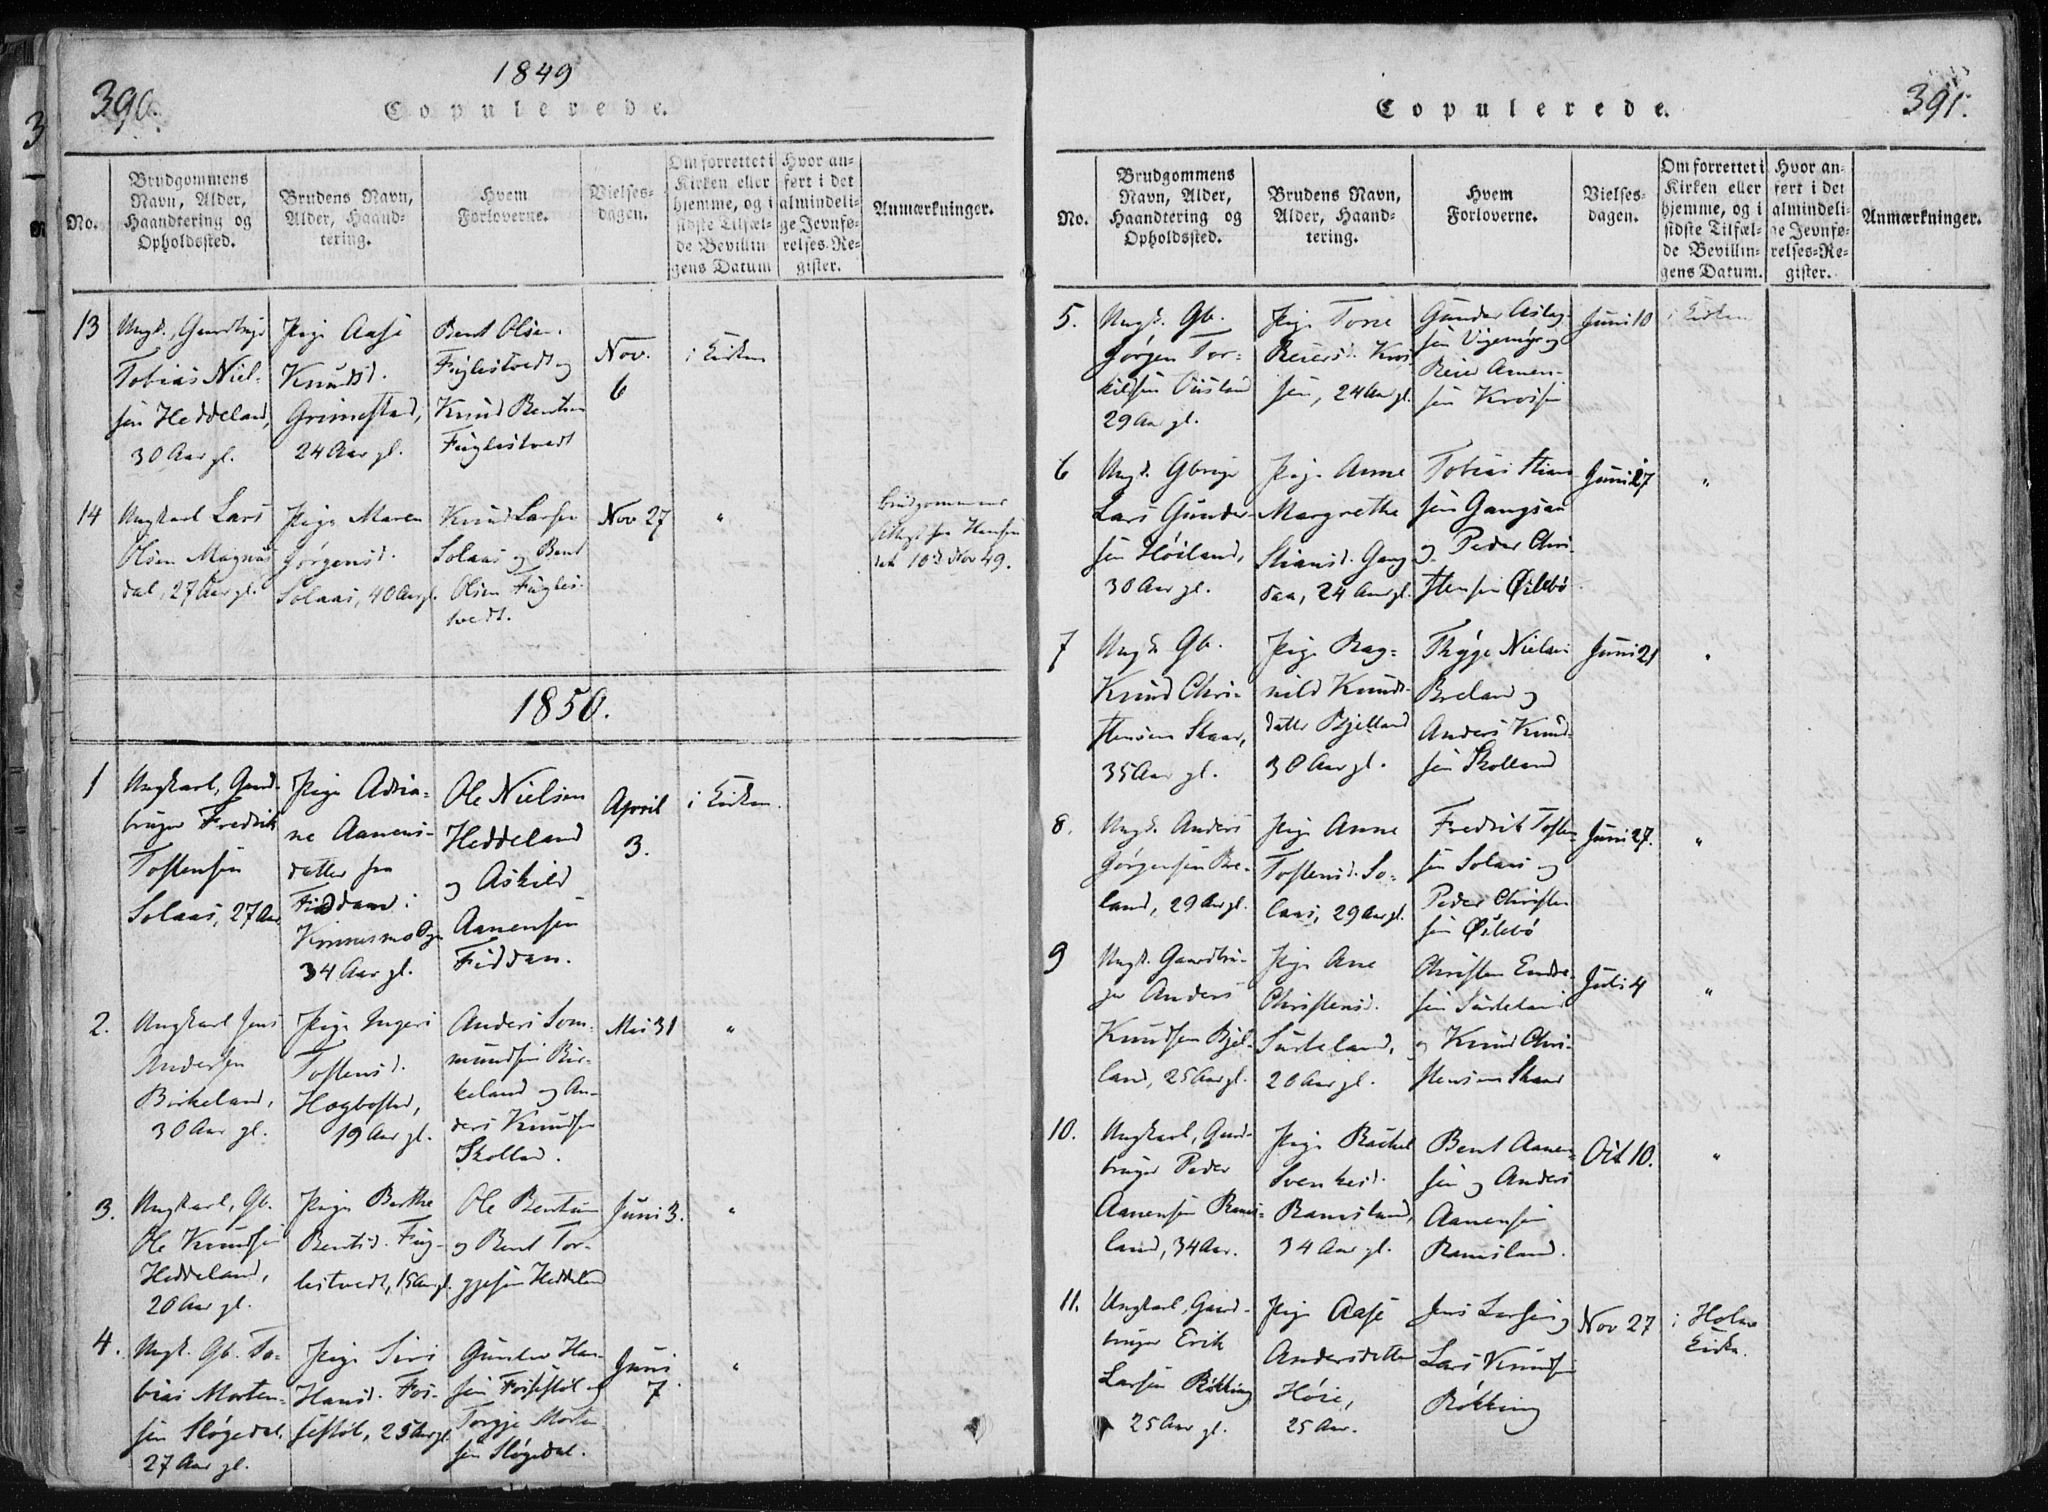 390.
1849
Copulerede.
No.
Brudgommens Navn, Alder, Haandtering og Opholdssted.
Brudens Navn, Alder, Haandtering.
Hvem Forloverne.
Vielsesdagen.
Om forrettet i Kirken eller hjemme, og i sidste Tilfælde Bevillingens Datum
Hvor anført i det almindelige Jevnførelses-Register.
Anmærkninger.
13
Ungk. Gaardbruger
Tobias Niel-
sen Heddeland,
30 Aar gl.
Pige Aase
Knudsd.
Grimestad,
24 Aar gl.
Bent Olsen
Fuglestvedt og
Knud Bentsen
Fuglestvedt
Nov.
6
i Kirken
14
Ungkarl Lars
Olsen Magnus
dal, 27 Aar gl.
Pige Maren
Jørgensd.
Solaas, 40 Aar gl.
Knud Larsen
Solaas og Bent
Olsen Fugles-
tvedt.
Nov 27
"
Brudgommens
den 10de Nov 49.
1850.
1
Ungkarl, Gaard-
bruger Fredrik
Tostensen
Solaas, 27 Aar
Pige Adria-
ne Aanens-
datter fra
Fiddan i
34 Aar gl.
Ole Nielsen
Heddeland
og Askild
Aanensen
Fiddan.
April
3.
i Kirken.
2.
Ungkarl Jens
Andersen
Birkeland,
30 Aar gl.
Pige Ingeri
Tostensd.
Hægbostad,
19 Aar gl.
Anders Som-
mundsen Bir-
keland og An-
ders Knudsen
Skolland.
Mai 31
"
3.
Ungkarl, Gb.
Ole Knudsen
Heddeland,
20 Aar gl.
Pige Berthe
Bentsd. Fug-
lestvedt, 15 Aar gl.
Ole Bentsen
og Bent Tor-
gjesen Heddeland
Juni 3.
"
4.
Ungk. Gb. To-
bias Morten-
sen Sløgedal,
27 Aar gl.
Pige Siri
Hansd. Fos-
sestøl, 25 Aar gl.
Gunder Han-
sen Fossestøl og
Torgje Morten-
sen Sløgedal.
Juni
7
"
391.
Copulerede.
No.
Brudgommens Navn, Alder, Haandtering og Opholdssted.
Brudens Navn, Alder, Haandtering.
Hvem Forloverne.
Vielsesdagen.
Om forrettet i Kirken eller hjemme, og i sidste Tilfælde Bevillingens Datum.
Hvor anført i det almindelige Jevnførelses-Register.
Anmærkninger.
5.
Ungk. Gb.
Jørgen Tor-
kildsen Ousland
29 Aar gl.
Pige Tone
Reiersd. Kroi
sen, 24 Aar gl.
Gunder Aslag-
sen Vigemyr og
Reier Aanen-
sen Kroisen
Juni 10
i Kirken
6
Ungk. Gbruger
Lars Gunder-
sen Høiland,
30 Aar gl.
Pige Anne
Margrethe
Stiansd. Gang
saa, 24 Aar gl.
Tobias Stian
sen Gangsaa
og Peder Chri-
stensen Øslebø
Juni 17
"
7
Ungk Gb.
Knud Chri-
stensen Skaar,
35 Aar gl.
Pige Rag-
nild Knuds-
datter Bjelland
30 Aar gl.
Thyge Nielsen
Breland og
Anders Knud-
sen Skolland
Juni 21
"
8.
Ungk. Anders
Jørgensen Bre-
land, 29 Aar gl.
Pige Anne
Tostensd. So-
laas, 29 Aar gl.
Fredrik Tosten-
sen Solaas og
Peder Christen
sen Øslebø
Juni 27.
"
9
Ungk. Gaardbru-
ger Anders
Knudsen Bjel-
land, 25 Aar gl.
Pige Ane
Christensd.
Surteland,
20 Aar gl.
Christen Endre-
sen Surteland
og Knud Chri-
stensen Skaar
Juli 4
"
10.
Ungkarl, Gaard-
bruger Peder
Aanensen Rams-
land, 34 Aar.
Pige Rachel
Svenkesd.
Ramsland,
34 Aar gl.
Bent Aanen-
sen og Anders
Aanensen
Ramsland.
Oct 10.
"
11.
Ungkarl, Gaard-
bruger Erik
Larsen Røkking
25 Aar gl.
Pige Aase
Andersdatter
Høie,
25 Aar.
Jens Larsen og
Lars Knudsen
Røkking
Nov 27
i Holme
Kirke.